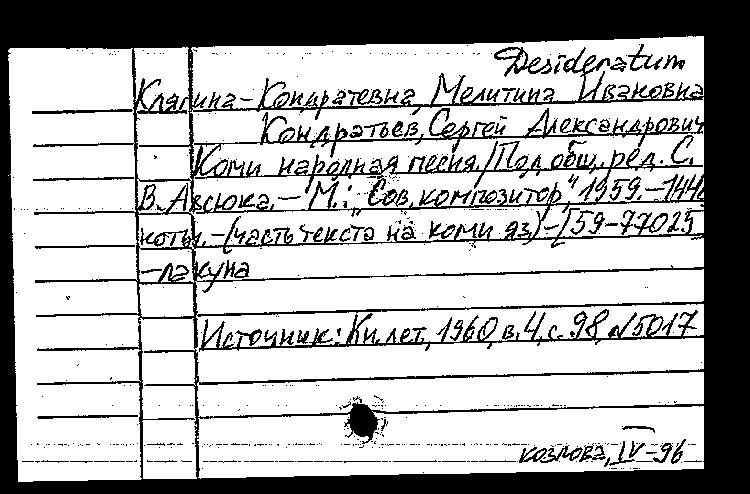 Desideratum
Клапина-Кондратевна, Мелитина Ивановна
Кондратьев, Сергей Александрович
Коми народная песня./Под общ. ред. С.
В. Аксюка. - М.: "Сов. композитор", 1959. - 144
ноты. - (часть текста на коми яз) - [59-77025
- лакуна
Источник: Кн. лет., 1960, в. 4, с. 98, №5017
козлова, IV-96